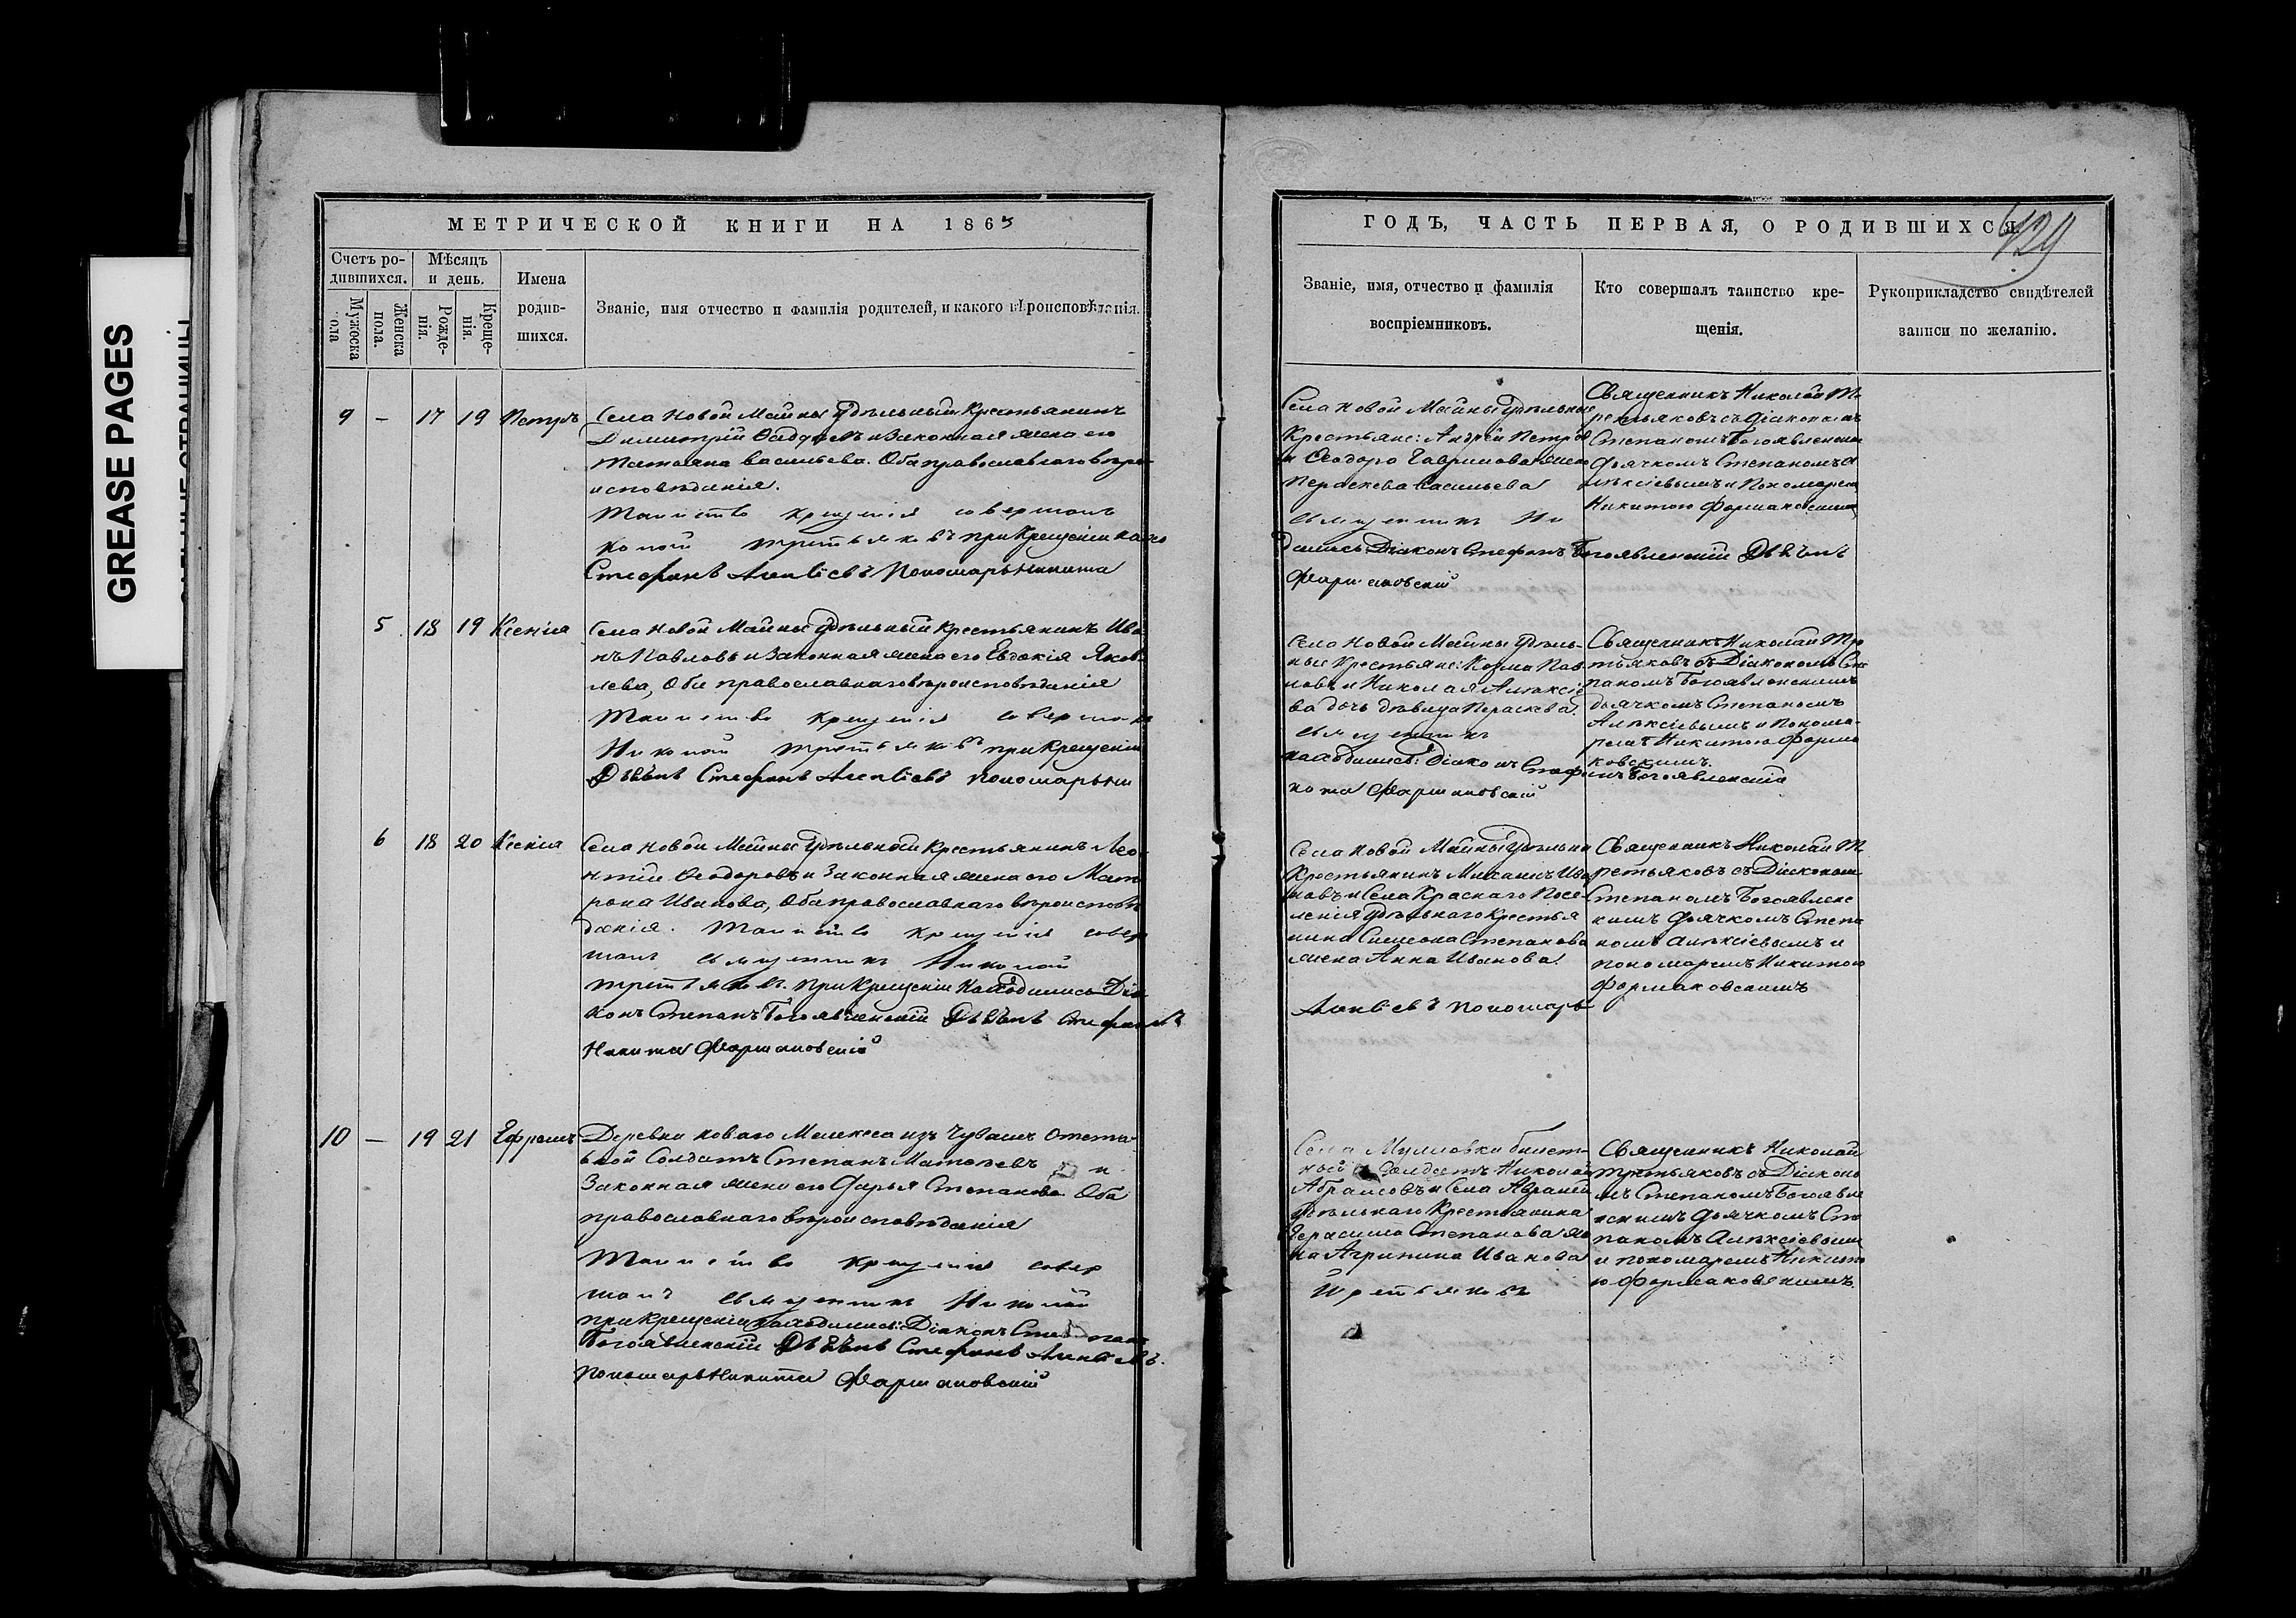 GREASE PAGES
МЕТРИЧЕСКОЙ КНИГИ НА 1863
Счетъ ро-
дившихся.
Мужеска
пола
Женска
пола.
Мѣсяцъ
и день.
Рожде-
нія.
Креще-
нія.
Имена
родив-
шихся.
Званіе, имя отчество и фамилія родителей, и какого вѣроисповѣданія.
9 – 17 19 Петръ
Села Новой Майны Удѣльный Крестьянинъ
Димитрій и Законная жена его
Татьяна Васильева. Оба православнаго вѣро-
исповѣданія.
Таинство крещенія совершалъ
Третьяковъ при Крещеніи
Стефанъ Алексіевъ Пономарь Никита
5 18 19 Ксенія
Села Новой Майны Удѣльный Крестьянинъ Ива-
нъ Павловъ и Законная жена его Евдокія Яков-
лева, Оба православнаго вѣроисповѣданія
Таинство крещенія совершалъ
Николай Третьяковъ при Крещеніи
Стефанъ Алексіевъ пономарь Ни
6 18 20 Ксенія
Села Новой Майны Удѣльный Крестьянинъ Лео-
нтій Ѳеодоровъ и Законная жена его Матр
рона Иванова, Оба православнаго вѣроисповѣ
данія. Таинство крещенія совер
шалъ священникъ Николай
Третьяковъ. при Крещеніи Находились Діа
конъ Степанъ Богоявленскій Стефанъ
Никита Фармаковскій
10 – 19 21 Ефремъ
Деревни новаго Мелекеса изъ Чувашъ
Солдатъ Степанъ Матвѣевъ и
Законная жена его Дарья Степанова Оба
православнаго вѣроисповѣданія
Таинство крещенія совер
шалъ священникъ Николай
при Крещеніи находились: Діаконъ
Богоявленскій Стефанъ Алексіевъ.
Пономарь Никита Фармаковскій
ГОДЪ, ЧАСТЬ ПЕРВАЯ, О РОДИВШИХСЯ
429
Званіе, имя, отчество и фамилія
воспріемниковъ.
Кто совершалъ таинство кре-
щенія.
Рукоприкладство свидѣтелей
записи по желанію.
Села Новой Майны Удѣльные
Крестьяне: Андрей Петровъ
и Ѳеодора Гаврилова жена
Пераскева Васильева
священникъ Ни
дились Діаконъ Стефанъ Богоявленскій
Фармаковскій
Священникъ Николай Т
ретьяковъ съ Діакономъ
Степаномъ Богоявленскимъ
Дьячкомъ Степаномъ А
лѣксіевымъ и Пономаремъ
Никитою Фармаковскимъ
Села Новой Майны Удѣль-
ные Крестьяне: Козма Пав
ловъ и Николая Алѣксіе
ва дочь дѣвица Пераскева.
священникъ
находились: Діаконъ Стефанъ Богоявленскій
кита Фармаковскій
Священникъ Николай Тре
тьяковъ съ Діакономъ Сте
паномъ Богоявленскимъ
дьячкомъ Степаномъ
Алѣксіевымъ и Понома-
ремъ Никитою Фарма
ковскимъ.
Села Новой Майны Удѣльный
Крестьянинъ Михаилъ Ива
новъ и Села Краснаго Посе-
ленія Удѣльнаго Крестья
нина Симеона Степанова
жена Анна Иванова.
Алексіевъ пономарь
Священникъ Николай Т
ретьяковъ съ Діакономъ
Степаномъ Богоявленс
кимъ Дьячкомъ Степа
номъ Алѣксіевымъ и
пономаремъ Никитою
Фармаковскимъ
Села Мулловки билет-
ной Солдатъ Николай
Абрамовъ и Села
Удѣльнаго Крестьянина
Герасима Степанова же
на Агрипина Иванова
Третьяковъ
Священникъ Николай
Третьяковъ съ Діаконо
мъ Степаномъ Богоявле
нскимъ Дьячкомъ Сте
паномъ Алѣксіевымъ
и пономаремъ Никито
ю Фармаковскимъ.